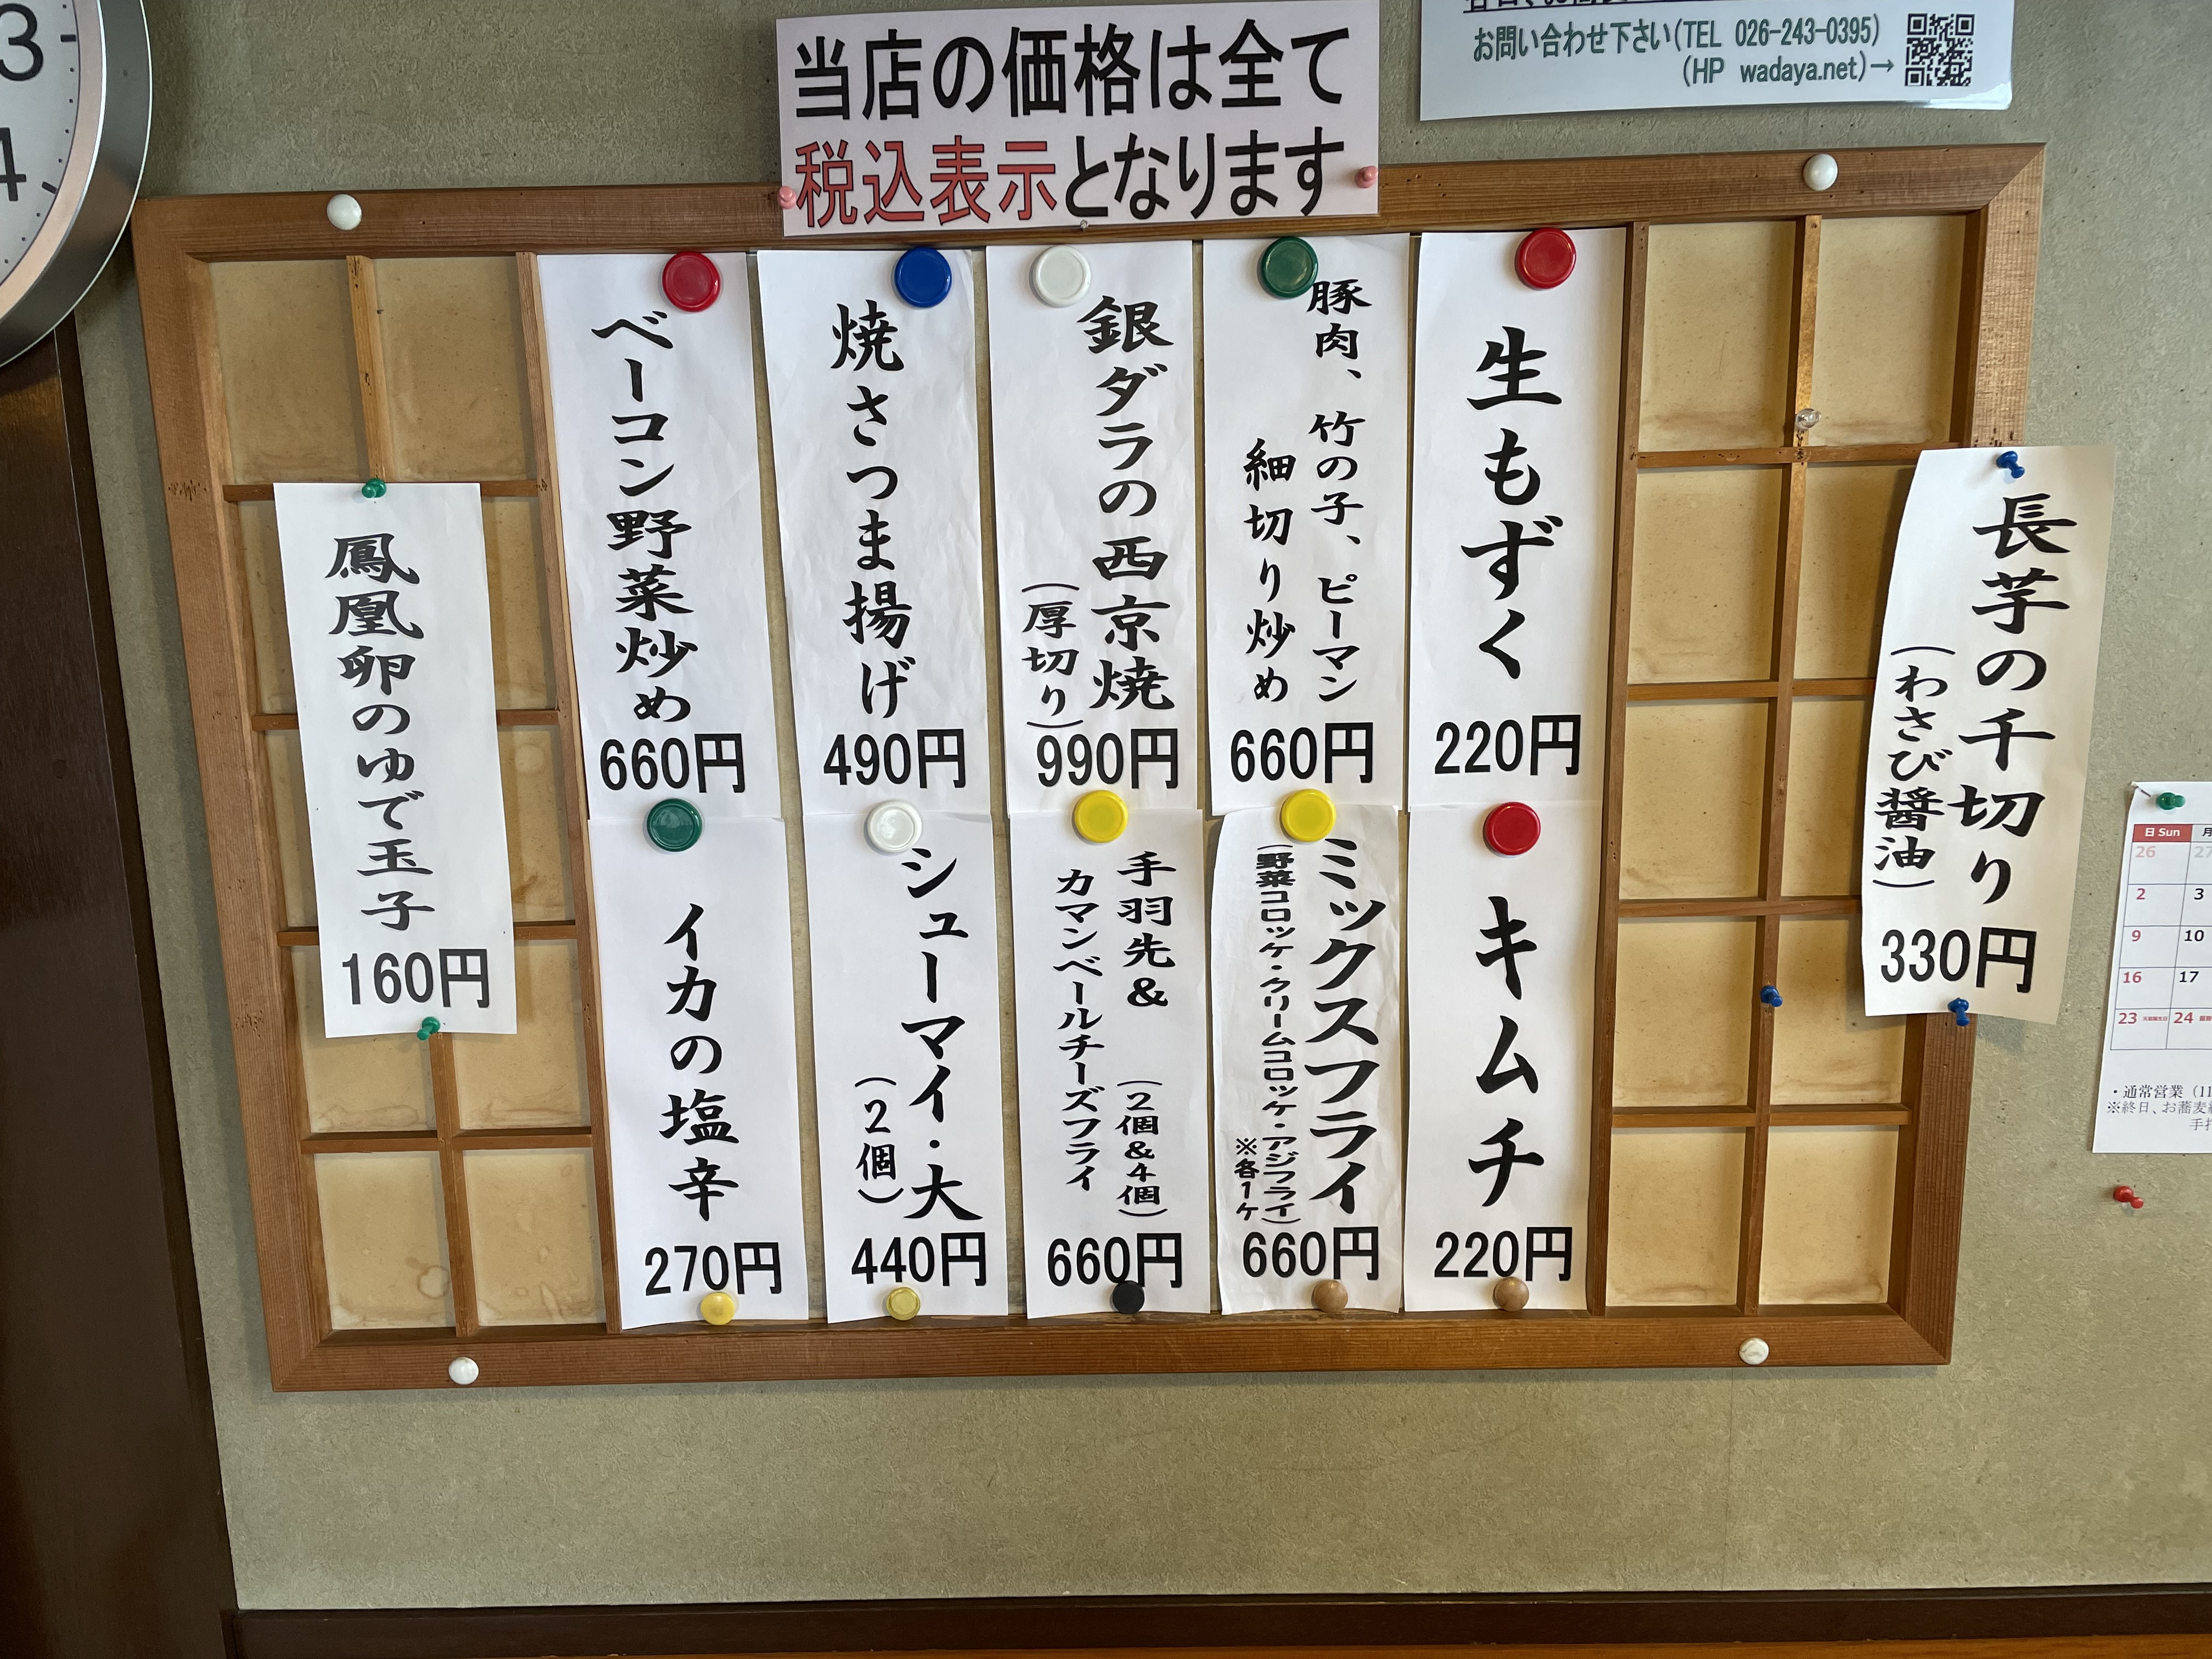 お問い合わせ下さい(TEL 026-243-0395)
(HP wadaya.net)→
当店の価格は全て
税込表示となります
長芋の千切り
(わさび醤油)
330円
生もずく
220円
豚肉、竹の子、ピーマン
細切り炒め
660円
銀ダラの西京焼
(厚切り)
990円
焼さつま揚げ
490円
ベーコン野菜炒め
660円
キムチ
220円
ミックスフライ
(野菜コロッケ・クリームコロッケ・アジフライ)
※各1ケ
660円
手羽先&
カマンベールチーズフライ
(2個&4個)
660円
シューマイ・大
(2個)
440円
イカの塩辛
270円
鳳凰卵のゆで玉子
160円
3
4
日 Sun 月
26 27
2 3
9 10
16 17
23 24
・通常営業(11
※終日、お蕎麦